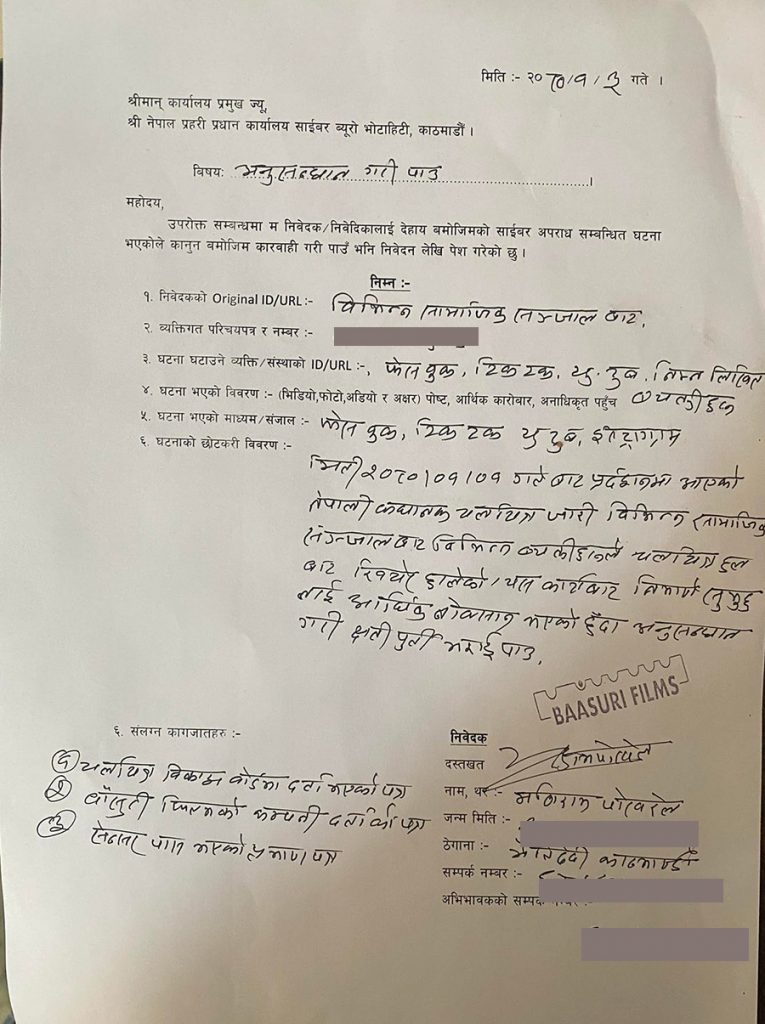 मिति :- २०८०/१/३ गते ।
श्रीमान् कार्यालय प्रमुख ज्यू,
श्री नेपाल प्रहरी प्रधान कार्यालय साईबर ब्यूरो भोटाहिटी, काठमाडौं ।
विषय: अनुसन्धान गरी पाउ
महोदय,
उपरोक्त सम्बन्धमा म निवेदक/निवेदिकालाई देहाय बमोजिमको साईबर अपराध सम्बन्धित घटना
भएकोले कानुन बमोजिम कारवाही गरी पाउँ भनि निवेदन लेखि पेश गरेको छु ।
निम्न :-
१. निवेदकको Original ID/URL:- विभिन्न सामाजिक सञ्जाल बाट,
२. व्यक्तिगत परिचयपत्र र नम्बर :-
३. घटना घटाउने व्यक्ति/संस्थाको ID/URL:-, फेस वुक, टिक टक, यु. टुब, निम्न लिखित
४. घटना भएको विवरण :- (भिडियो,फोटो,अडियो र अक्षर) पोष्ट, आर्थिक कारोबार, अनाधिकृत पहुँच
५. घटना भएको माध्यम/संजाल :- फेस वुक, टिक टक यु टुब, इस्टाग्राम
६. घटनाको छोटकरी विवरण :-
मिती २०८०/०१/०१ गते बाट प्रर्दशनमा आएको
नेपाली कथानक चलचित्र जारी विभिन्न सामाजिक
सञ्जाल बाट विभिन्न ब्यक्तीहरुले चलचित्र हल
बाट खिचेर हालेको / यस कार्यबाट निर्माण समुह
लाई आर्थिक नोक्सान भएको हुँदा अनुसन्धान
गरी क्षती पुर्ती भराई पाउ,
BAASURI FILMS
६. संलग्न कागजातहरु :-
१ चलचित्र विकास बोर्डमा दर्ता भएको पत्र
२ बाँसुरी फिल्मको कम्पनी दर्ताको पत्र
३ सेन्सर पास भएको प्रमाण पत्र
निवेदक
दस्तखत
नाम, थर :- मणिराम पोखरेल
जन्म मिति :-
ठेगाना :- मैतिदेवी काठमाण्डौं
सम्पर्क नम्बर :-
अभिभावकको सम्पर्क